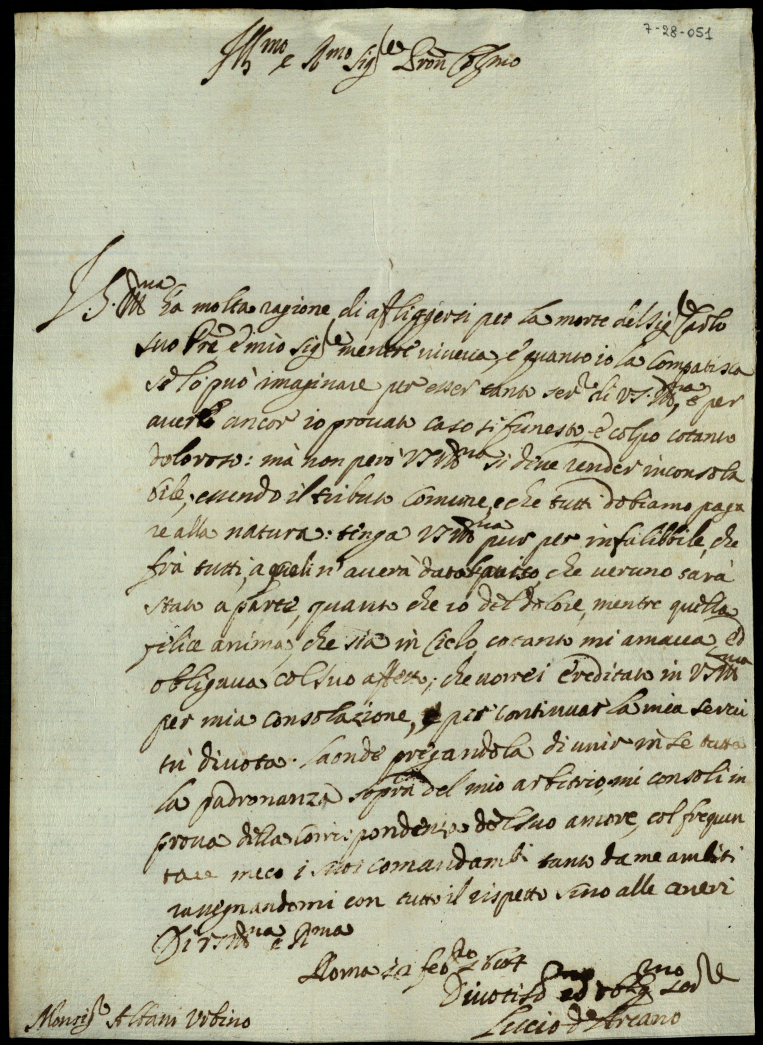 7-28-051
Ill.mo e R.mo Sig.re Pron Col.mo
V.S. Ill.ma hà molta ragione di affliggersi per la morte del Sig.re Carlo
suo Pre, e mio Sig.re mentre viveva, e quanto io la compatisca
se lo può imaginare per esser tanto ser.re di V.S. Ill.ma, e per
aver ancor io provato caso sì funesto, e colpo cotanto
doloroso: mà non però V.S. Ill.ma si deve render inconsola
bile, essendo il tributo comune, e che tutti dobiamo paga
re alla natura: tenga V.S. Ill.ma pur per infalibbile, che
frà tutti, a quali n'averà dato avviso, che veruno sarà
stato à parte, quanto che io del dolore, mentre quella
felice anima, che sia in Cielo, cotanto mi amava ed
obligava col suo affetto, che vorrei ereditato in V.S. Ill.ma
per mia consolazione, e per continuar la mia servi
tù divota. Laonde pregandola di unir in se tutta
la padronanza sopra del mio arbitrio, mi consoli in
prova della corrispondenza del suo amore, col frequen
tare meco i suoi comandamti tanto da me ambiti
rassegnandomi con tutto il rispetto sino alle ceneri
Di V.S. Ill.ma e R.ma
Roma 22 feb.ro
Divotis.mo ed oblig.mo ser.re
Lucio de Arcano
Monsig.re Albani Urbino